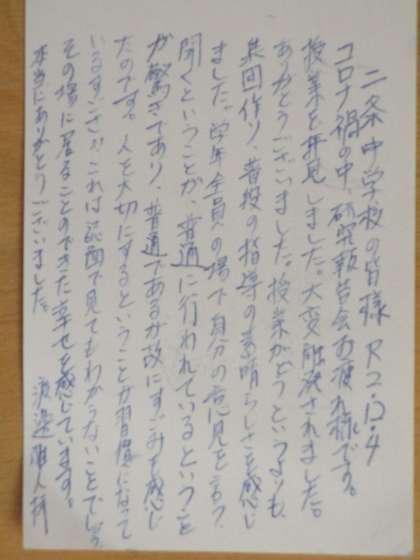 二条中学校の皆様 R2.12.4
コロナ禍の中、研究報告会お疲れ様です。
授業を拝見しました。大変触発されました。
ありがとうございました。授業がどうというよりも、
集団作り、普段の指導の素晴らしさを感じ
ました。学年全員の場で自分の意見を言う、
聞くということが、普通に行われているということ
が驚きであり、普通であるが故にすごみを感じ
たのです。人を大切にするということが習慣になって
いるすごさ、これは誌面で見てもわからないことでしょう。
その場に居ることのできた幸せを感じています。
本当にありがとうございました。 渡邉雅人拝